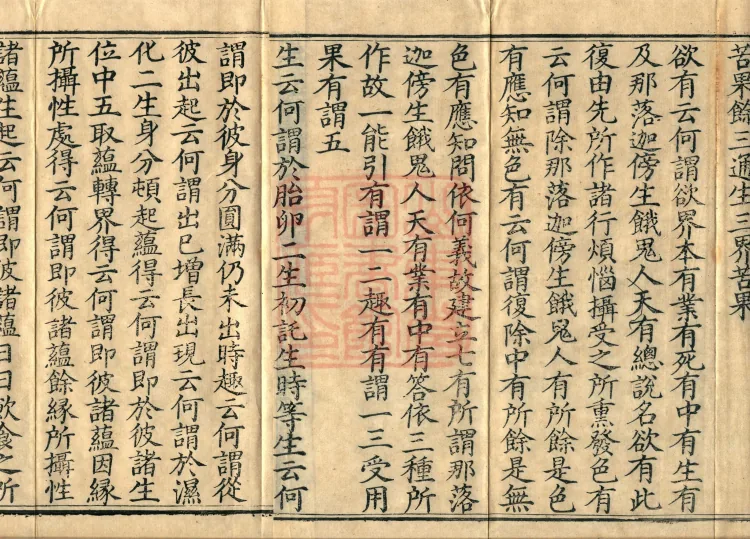 苦果餘三通生三界苦果
欲有云何謂欲界本有業有死有中有生有
及那落迦傍生餓鬼人天有總說名欲有此
復由先所作諸行煩惱攝受之所熏發色有
云何謂除那落迦傍生餓鬼人有所餘是色
有應知無色有云何謂復除中有所餘是無
色有應知問依何義故建立七有所謂那落
迦傍生餓鬼人天有業有中有答依三種所
作故一能引有謂一二趣有有謂一三受用
果有謂五
生云何謂於胎卵二生初託生時等生云何
謂即於彼身分圓滿仍未出時趣云何謂從
彼出起云何謂出已增長出現云何謂於濕
化二生身分頓起蘊得云何謂即於彼諸生
位中五取蘊轉界得云何謂即彼諸蘊因緣
所攝性處得云何謂即彼諸蘊餘緣所攝性
諸蘊生起云何謂即彼諸蘊日日飲食之所